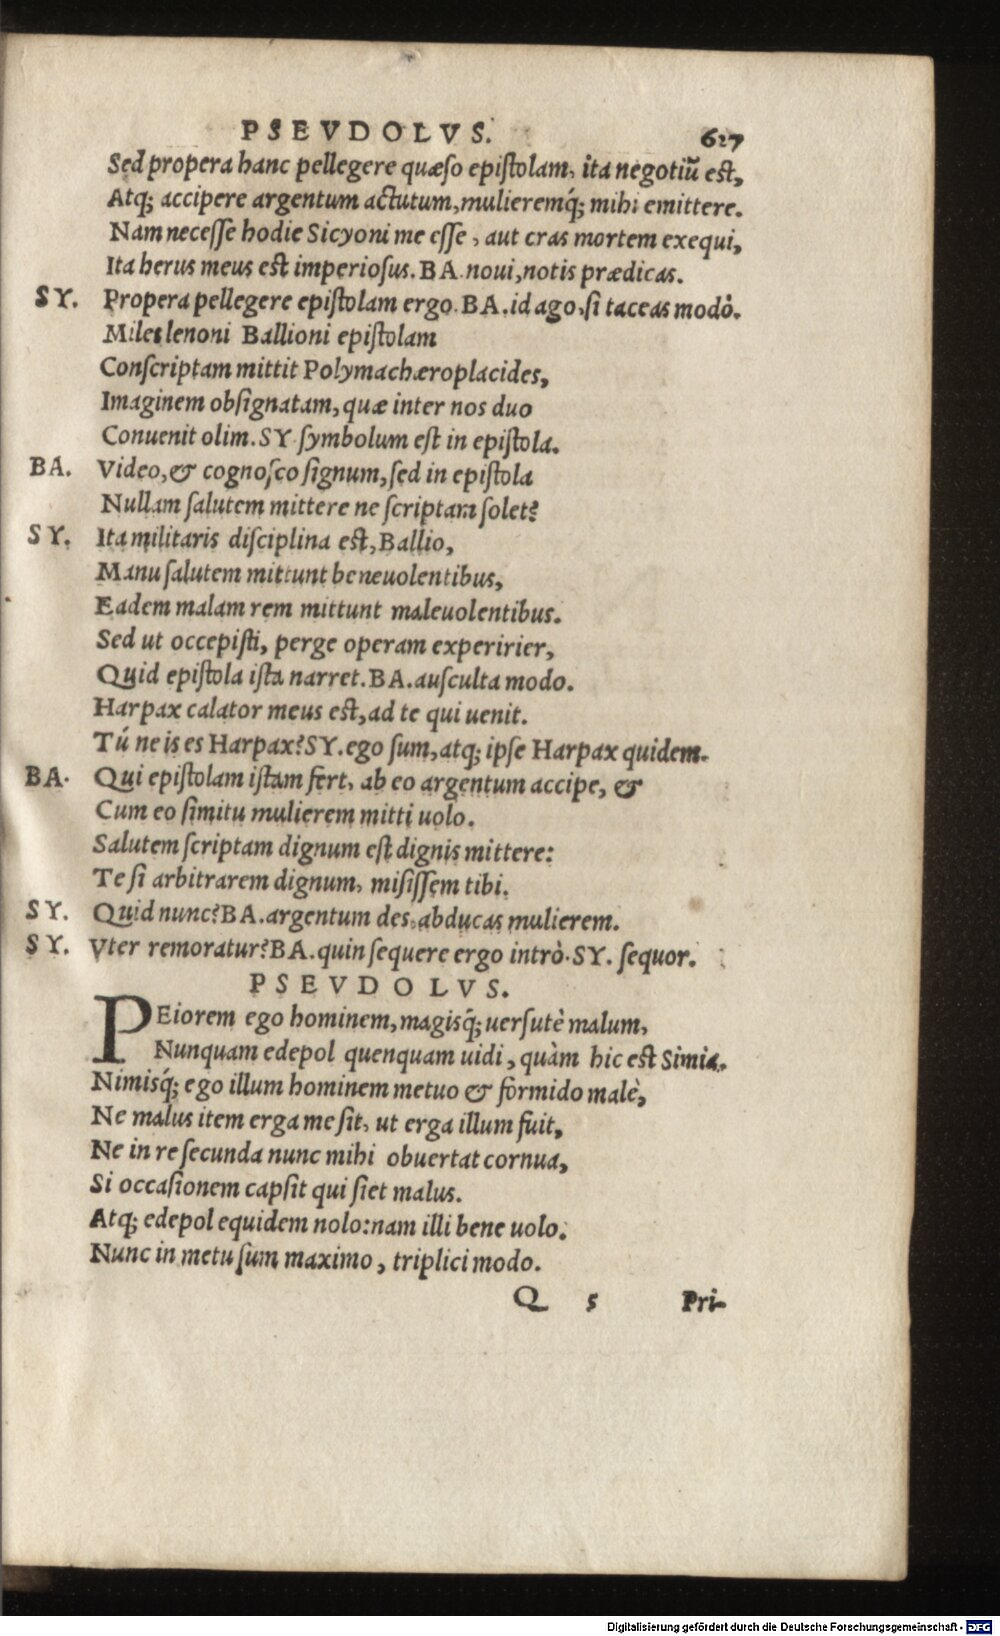 PSEVDOLVS. 627
Sed propera hanc pellegere quæso epistolam, ita negotiũ est,
Atq; accipere argentum actutum, mulieremq́; mihi emittere.
Nam necesse hodie Sicyoni me esse, aut cras mortem exequi,
Ita herus meus est imperiosus. BA. noui, notis prædicas.
SY. Propera pellegere epistolam ergo. BA. id ago, si taceas modò.
Miles lenoni Ballioni epistolam
Conscriptam mittit Polymachæroplacides,
Imaginem obsignatam, quæ inter nos duo
Conuenit olim. SY. symbolum est in epistola.
BA. Video, & cognosco signum, sed in epistola
Nullam salutem mittere ne scriptam solet?
SY. Ita militaris disciplina est, Ballio,
Manu salutem mittunt beneuolentibus,
Eadem malam rem mittunt maleuolentibus.
Sed ut occepisti, perge operam experirier,
Quid epistola ista narret. BA. ausculta modo.
Harpax calator meus est, ad te qui uenit.
Tú ne is es Harpax? SY. ego sum, atq; ipse Harpax quidem.
BA. Qui epistolam istam fert, ab eo argentum accipe, &
Cum eo simitu mulierem mitti uolo.
Salutem scriptam dignum est dignis mittere:
Te si arbitrarem dignum, misissem tibi.
SY. Quid nunc? BA. argentum des, abducas mulierem.
SY. Vter remoratur? BA. quin sequere ergo intrò. SY. sequor.
PSEVDOLVS.
PEiorem ego hominem, magisq́; uersutè malum,
Nunquam edepol quenquam uidi, quàm hic est Simia.
Nimisq́; ego illum hominem metuo & formido malè,
Ne malus item erga me sit, ut erga illum fuit,
Ne in re secunda nunc mihi obuertat cornua,
Si occasionem capsit qui siet malus.
Atq; edepol equidem nolo: nam illi bene uolo.
Nunc in metu sum maximo, triplici modo.
Q 5 Pri-
Digitalisierung gefördert durch die Deutsche Forschungsgemeinschaft - DFG